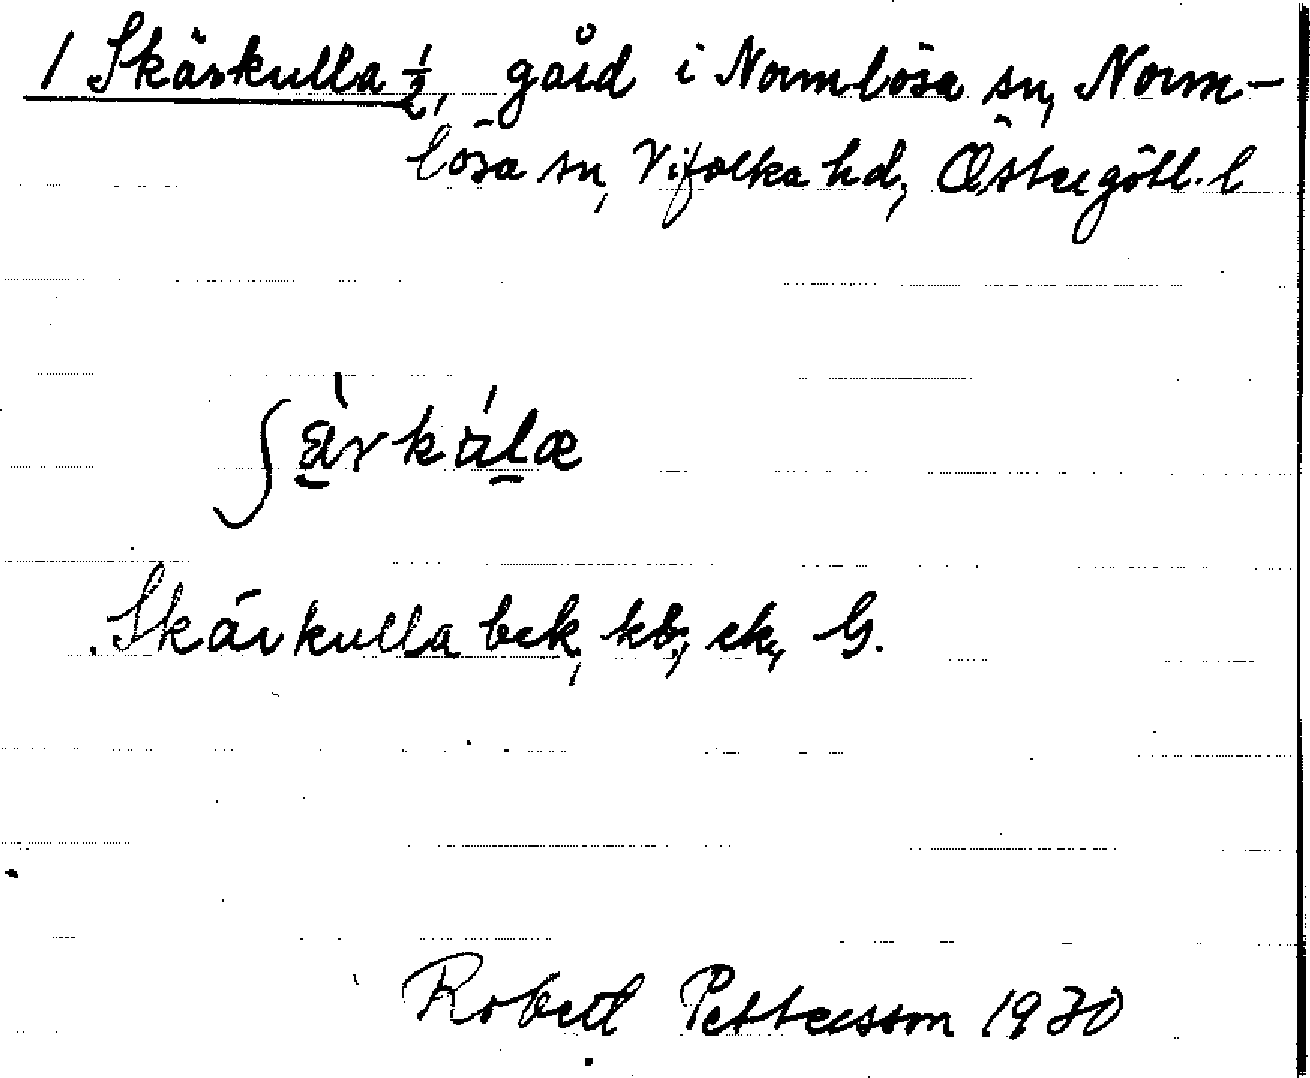 1 Skärkulla ½, gård i Normlösa sn, Norm-
lösa sn, Vifolka hd, Östergötl. l
Skärkulla bek, kb, ek, G.
Robert Pettersson 1930